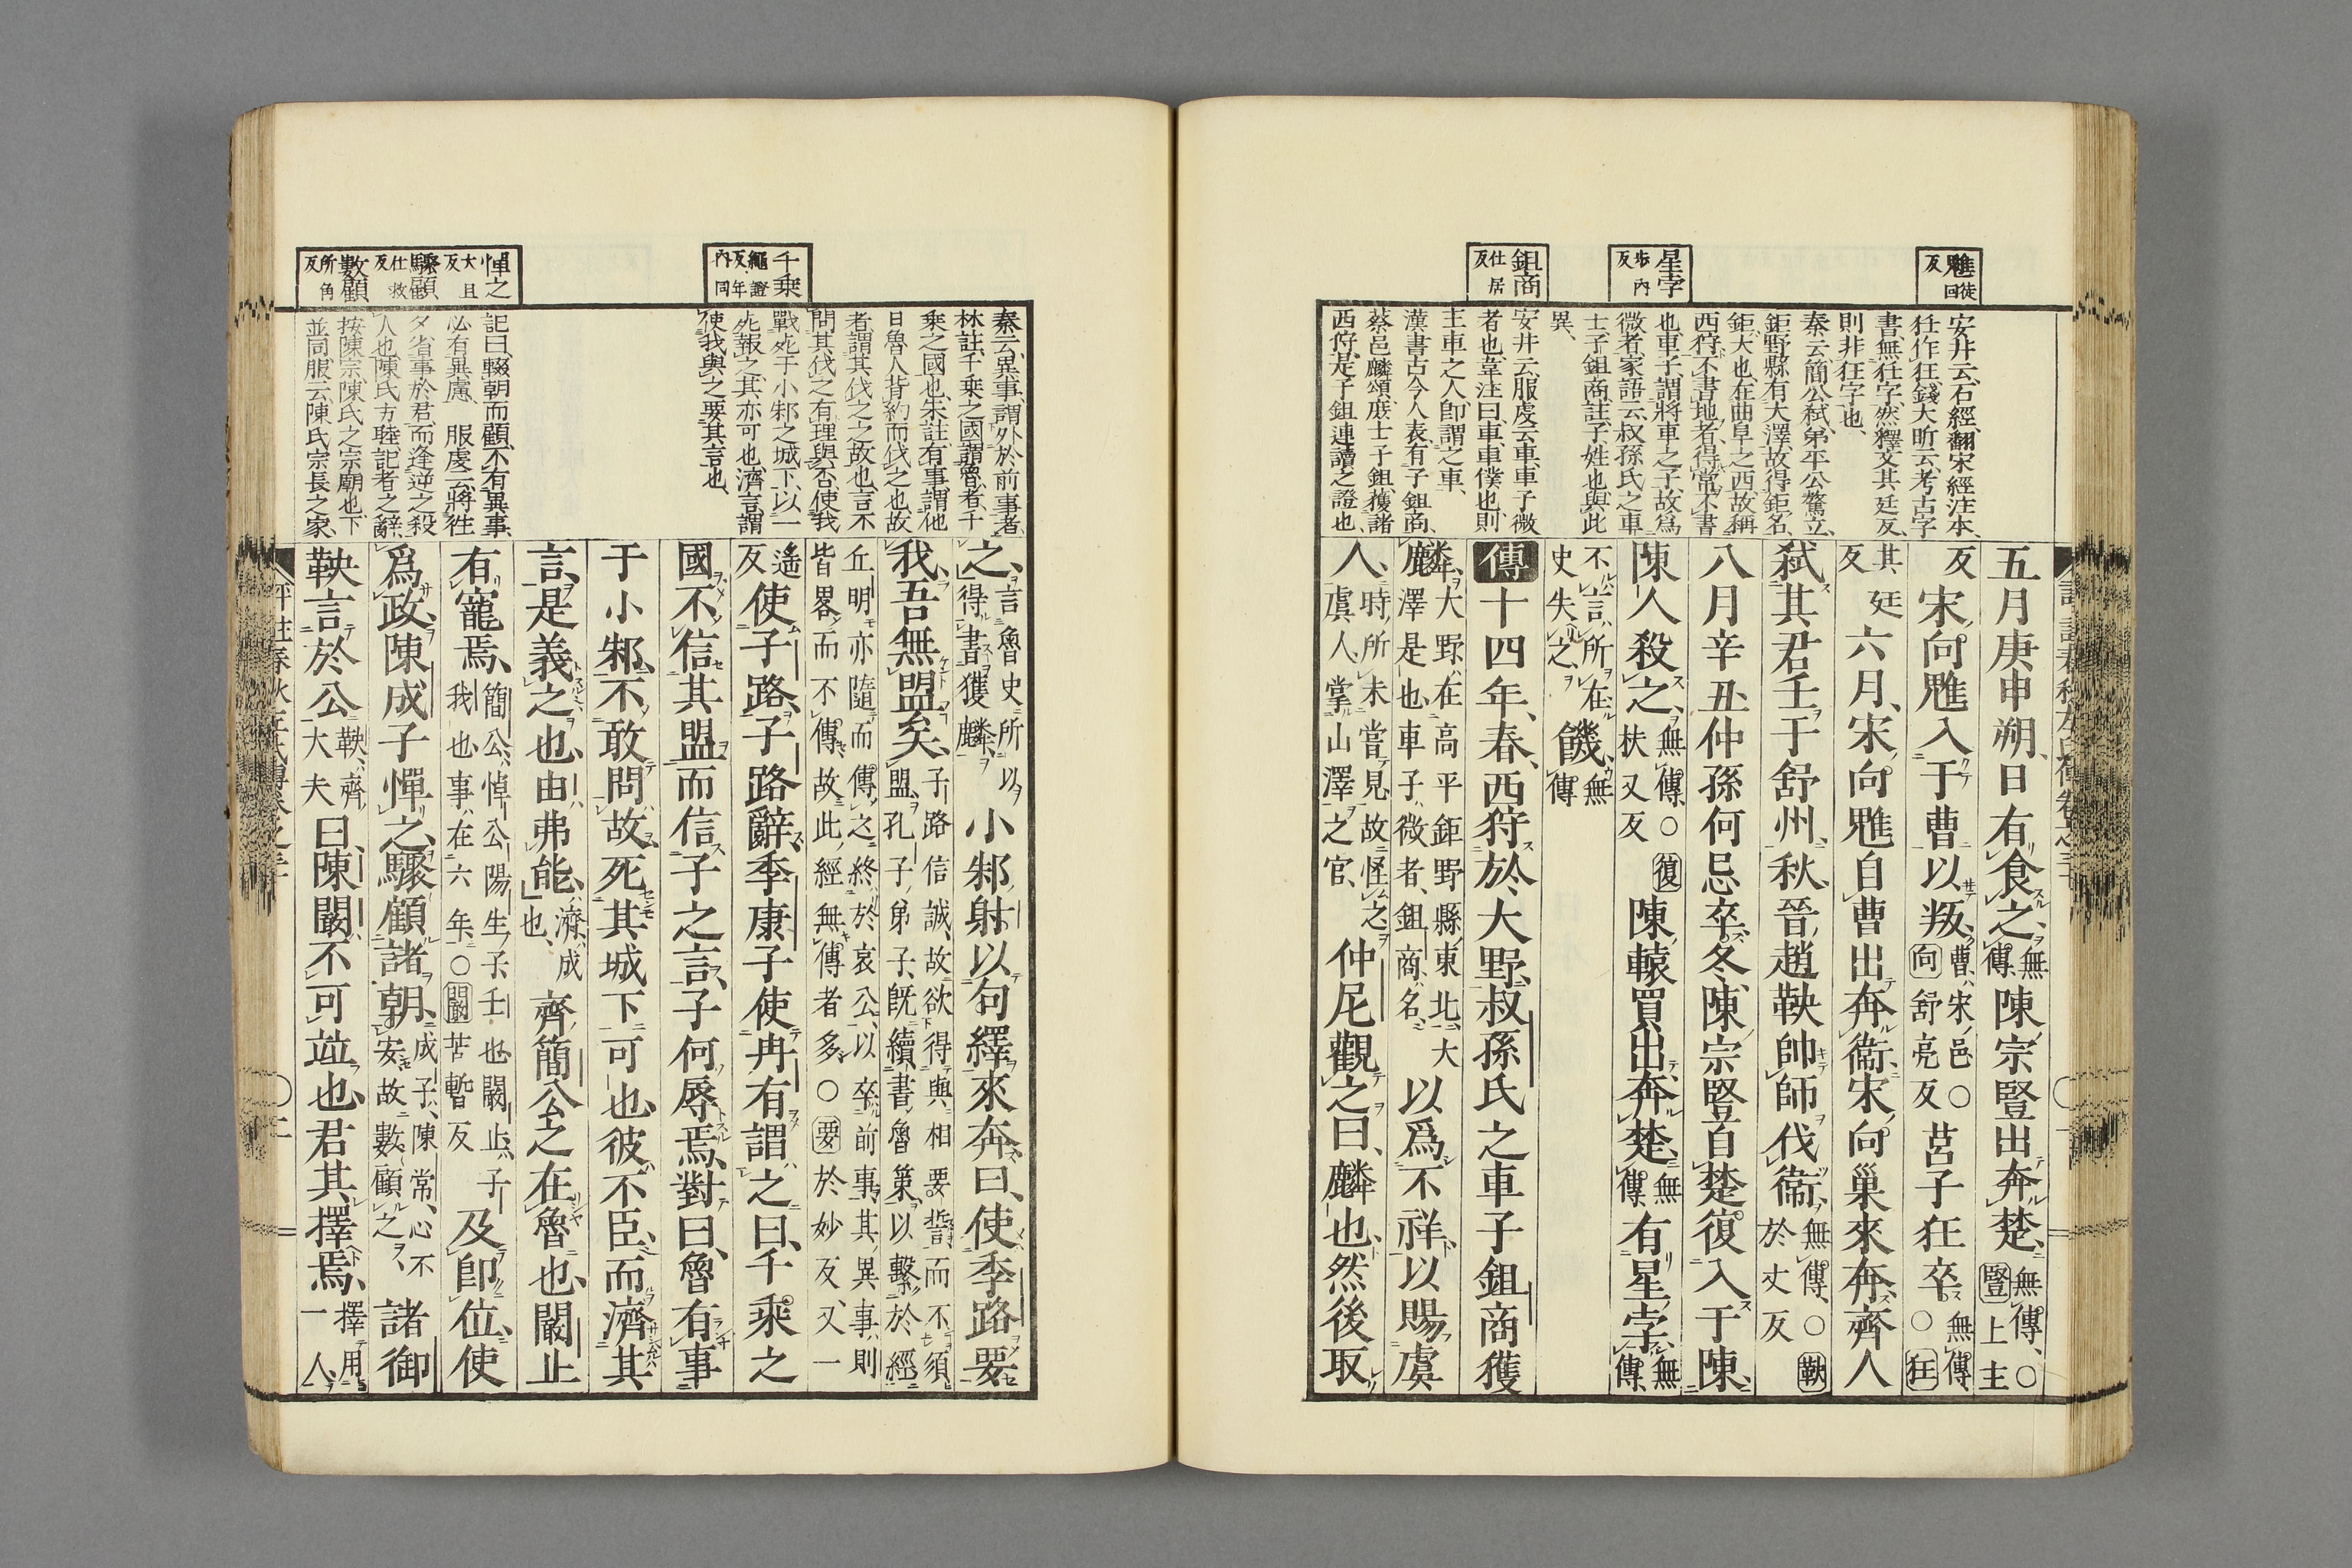 魋徒回反
星孛歩內反
鉏商仕居反
安井云、石經、翻宋經注本、
狅作狂、錢大昕云、考古字
書無狅字、然釋文其廷反、
則非狂字也、
秦云、簡公弑、弟平公驁立、
鉅野縣有大澤、故得鉅名、
鉅大也、在曲阜之西、故稱
西狩、不書地者、得常不書
也、車子謂將車之子、故爲
微者、家語云、叔孫氏之車
士子鉏商、註子、姓也、與此
異、
安井云、服虔云、車、車子微
者也、韋注曰、車、車僕也、則
主車之人、卽謂之車、
漢書古今人表有子鉏商、
蔡邕麟頌、庶士子鉏、獲諸
西狩、是子鉏連讀之證也、
五月庚申朔、日有食之、無傳、陳宗豎出奔楚、無傳、○豎上主
反宋向魋入于曹以叛、曹、宋邑、○向舒亮反莒子狅卒、無傳、○狅
其廷反六月、宋向魋自曹出奔衞、宋向巢來奔、齊人
弑其君壬于舒州、秋、晉趙鞅帥師伐衞、無傳、○鞅於丈反
八月辛丑、仲孫何忌卒、冬、陳宗豎自楚復入于陳、
陳人殺之、無傳、○復扶又反陳轅買出奔楚、無傳、有星孛、無傳、
不言所在、史失之、饑、無傳
傳十四年、春、西狩於大野、叔孫氏之車子鉏商獲
麟、大野、在高平鉅野縣東北、大麟澤是也、車子、微者、鉏商、名、以爲不祥、以賜虞
人、時所未嘗見、故怪之、虞人、掌山澤之官、仲尼觀之曰、麟也、然後取
千乘繩證反年內同
憚之大旦反
驟顧仕救反
數顧所角反
秦云、異事、謂外於前事者、
林註、千乘之國、謂魯者、千
乘之國也、朱註、有事、謂他
日魯人背約而伐之也、故
者、謂其伐之之故也、言不
問其伐之有理與否、使我
戰死于小邾之城下、以一
死報之、其亦可也、濟言、謂
使我與之要、其言也、
記曰、輟朝而顧、不有異事、
必有異慮、服虔云、將往
夕省事於君、而逢逆之殺
人也、陳氏方睦、記者之辭、
按陳宗、陳氏之宗廟也、下
並同、服云、陳氏宗長之家、
之、言魯史所以得書獲麟、小邾射以句繹來奔、曰、使季路要
我、吾無盟矣、子路信誠、故欲得與相要誓、而不須盟、孔子弟子、既續書魯策、以繫於經、
丘明亦隨而傳之、終於哀公、以卒前事、其異事、則皆畧而不傳、故此經無傳者多、○要於妙反、又一
遙反使子路、子路辭、季康子使冉有謂之曰、千乘之
國、不信其盟、而信子之言、子何辱焉、對曰、魯有事
于小邾、不敢問故、死其城下可也、彼不臣、而濟其
言、是義之也、由弗能、濟、成也、齊簡公之在魯也、闞止
有寵焉、簡公、悼公陽生子、壬也、闞止、子我也、事在六年、○闞苦暫反及卽位、使
爲政、陳成子憚之、驟顧諸朝、成子、陳常、心不安、故數顧之、諸御
鞅言於公、鞅、齊大夫曰、陳闞不可竝也、君其擇焉、擇用一人、